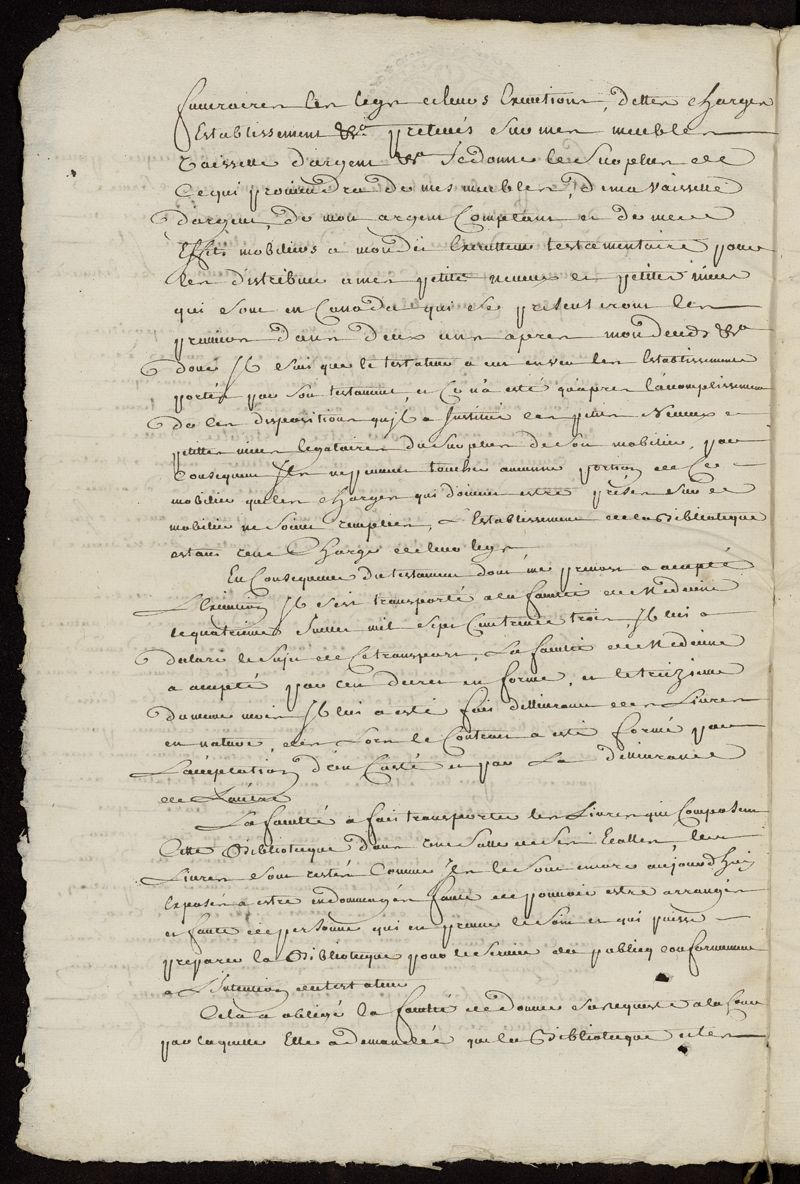 funeraires les legs et leurs Executions, dettes charges
Establissement &ca preleués sur mes meubles
Vaisselle d'argent &ca Je donne le surplus de
Ce qui prouiendra de mes meubles, de ma vaisselle
d'argent, de mon argent Comptant et de mes
Effets mobiliers a mon dit Executeur testamentaire pour
les distribuer a mes petits neueux et petites nieces
qui sont en Canada qui se presenteront les
premiers dans deux ans apres mon deceds &ca
donc Il suit que le testateur a eu en veu les Establissements
portés par son testament, et Ce n'a esté qu'apres l'acomplissement
de ces dispositions qu'Il a Institué ses petits Neueux et
petittes nieces legataires du surplus de son mobilier, par
Consequent Ils ne peuuent toucher aucune portion de Ce
mobilier que les charges qui doiuent estre prises sur Ce
mobilier ne soient remplies, L'Establissement de la Bibliotheque
estant une Charge de leur legs.
En Consequence du testament dont me prenost a accepté
L'Execution Il s'est transporté a la faculté de Medecine
le quatrieme Juillet mil sept Cent trente trois, Il lui a
declaré le sujet de Ce transport, La faculté de Medecine
a accepté par un decret en forme, et le treizieme
du meme mois Il lui a esté fait deliurance des Liures
en nature, des Lors le Contract a esté formé par
L'acceptation d'un Costé et par La deliurance
de L'autre
La faculté a fait transporter les Liures qui Composent
Cette Bibliotheque dans une Salle de ses Ecolles, les
Liures sont restés Comme Ils le sont encore aujourd'huy
Exposés a estre endommagés faute de pouuoir estre arrangés
et faute de personne qui en prenne le soin et qui puisse
preparer la Bibliotheque pour le seruice du publicq conformement
a L'Intention du testateur
Cela a obligé la faculté de donner sa requeste a la Cour
par laquelle Elle a demandé que la Bibliotheque et les